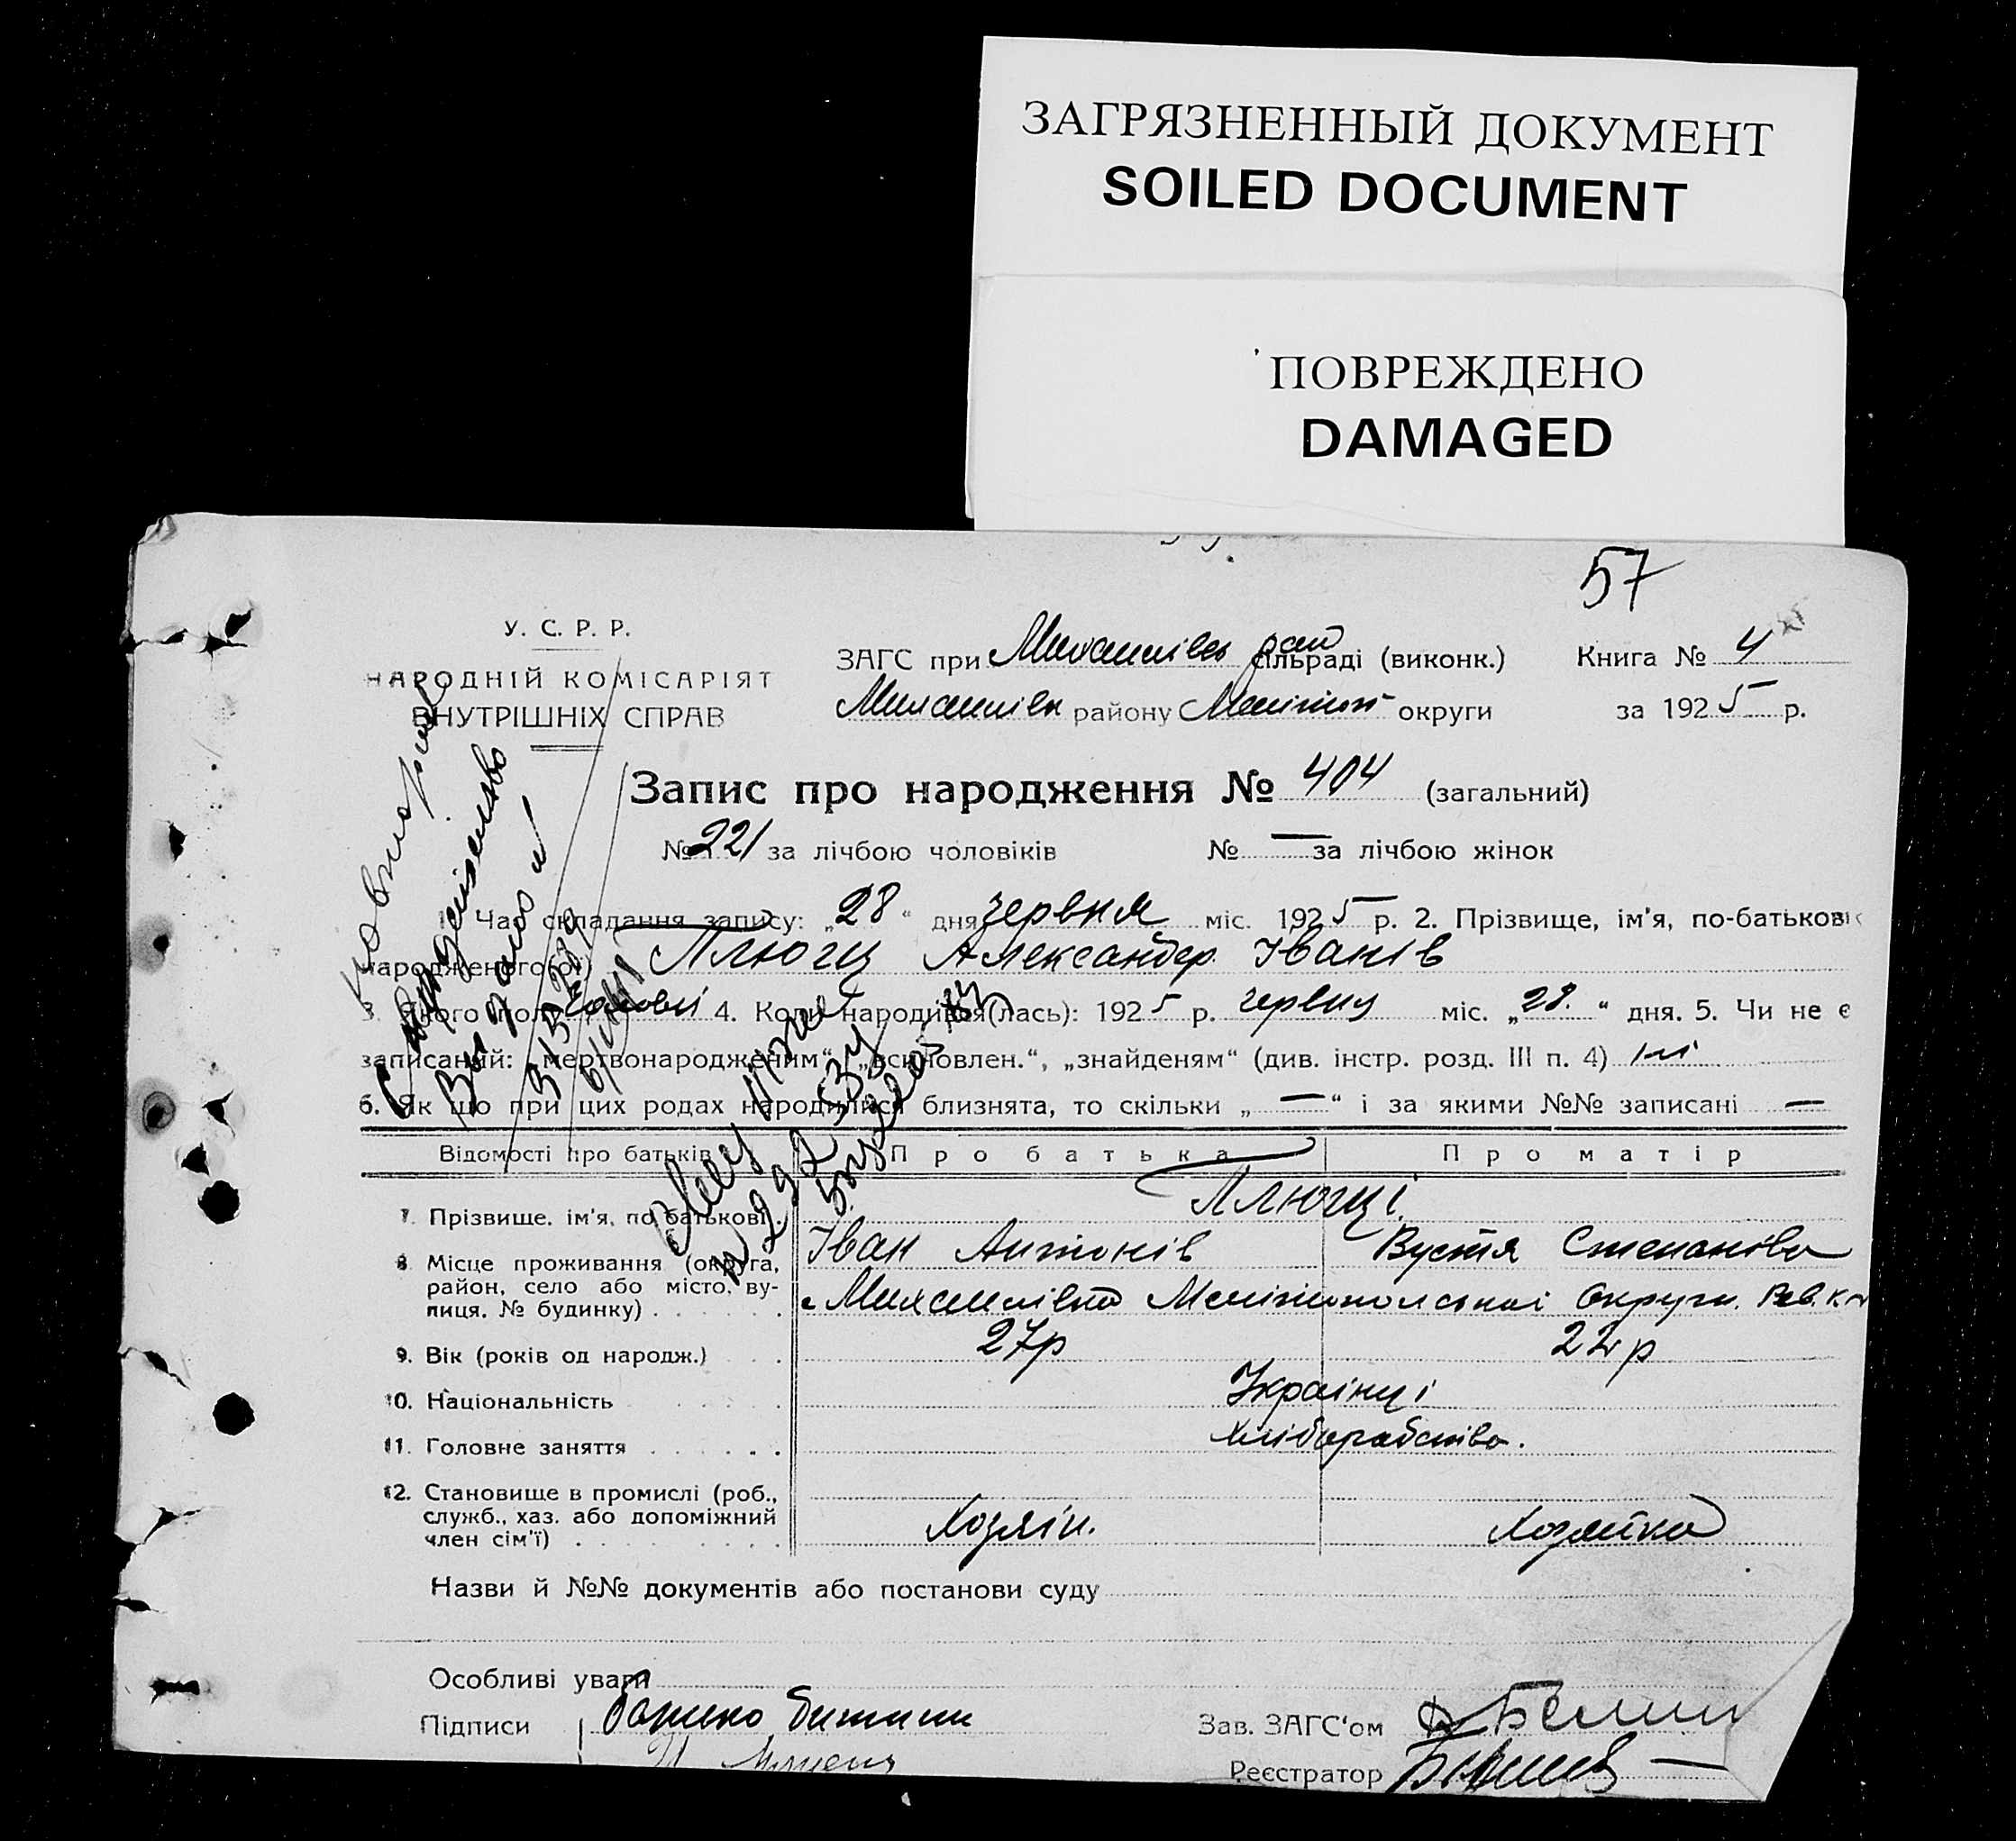 ЗАГРЯЗНЕННЫЙ ДОКУМЕНТ
SOILED DOCUMENT
ПОВРЕЖДЕНО
DAMAGED
57
У. С. Р. Р.
НАРОДНІЙ КОМІСАРІЯТ
ВНУТРІШНІХ СПРАВ
ЗАГС при Михайлівськ рай сільраді (виконк.) Книга № 4
Михайлівськ району Меліт округи за 1925 р.
Запис про народження № 404 (загальний)
№ 221 за лічбою чоловіків № — за лічбою жінок
1. Час складання запису: „28“ дня червня міс. 1925 р. 2. Прізвище, ім'я, по-батькові
народженого(ої) Плюгц Александер Іванів
3. Якого полу чолові 4. Коли народився(лась): 1925 р. червня міс. „28.“ дня. 5. Чи не є
записаний: „мертвонародженим“, „всиновлен.“, „знайденям“ (див. інстр. розд. III п. 4) ні
6. Як що при цих родах народилися близнята, то скільки „—“ і за якими №№ записані —
Відомості про батьків Про батька Про матір
7. Прізвище, ім'я, по батькові Плюгці.
Іван Антонів Вустя Степанова
8. Місце проживання (округа, район, село або місто, вулиця, № будинку) с Михайлівка Мелітопольскаі Округи.
9. Вік (років од народж.) 27р 22р
10. Національність Українці
11. Головне заняття хліборобство.
12. Становище в промислі (роб., служб., хаз. або допоміжний член сім'ї) Хозяїн. Хозяйка
Назви й №№ документів або постанови суду
Особливі уваги
Підписи
Зав. ЗАГС'ом
Реєстратор
повторне
Свидетельство
Выдано